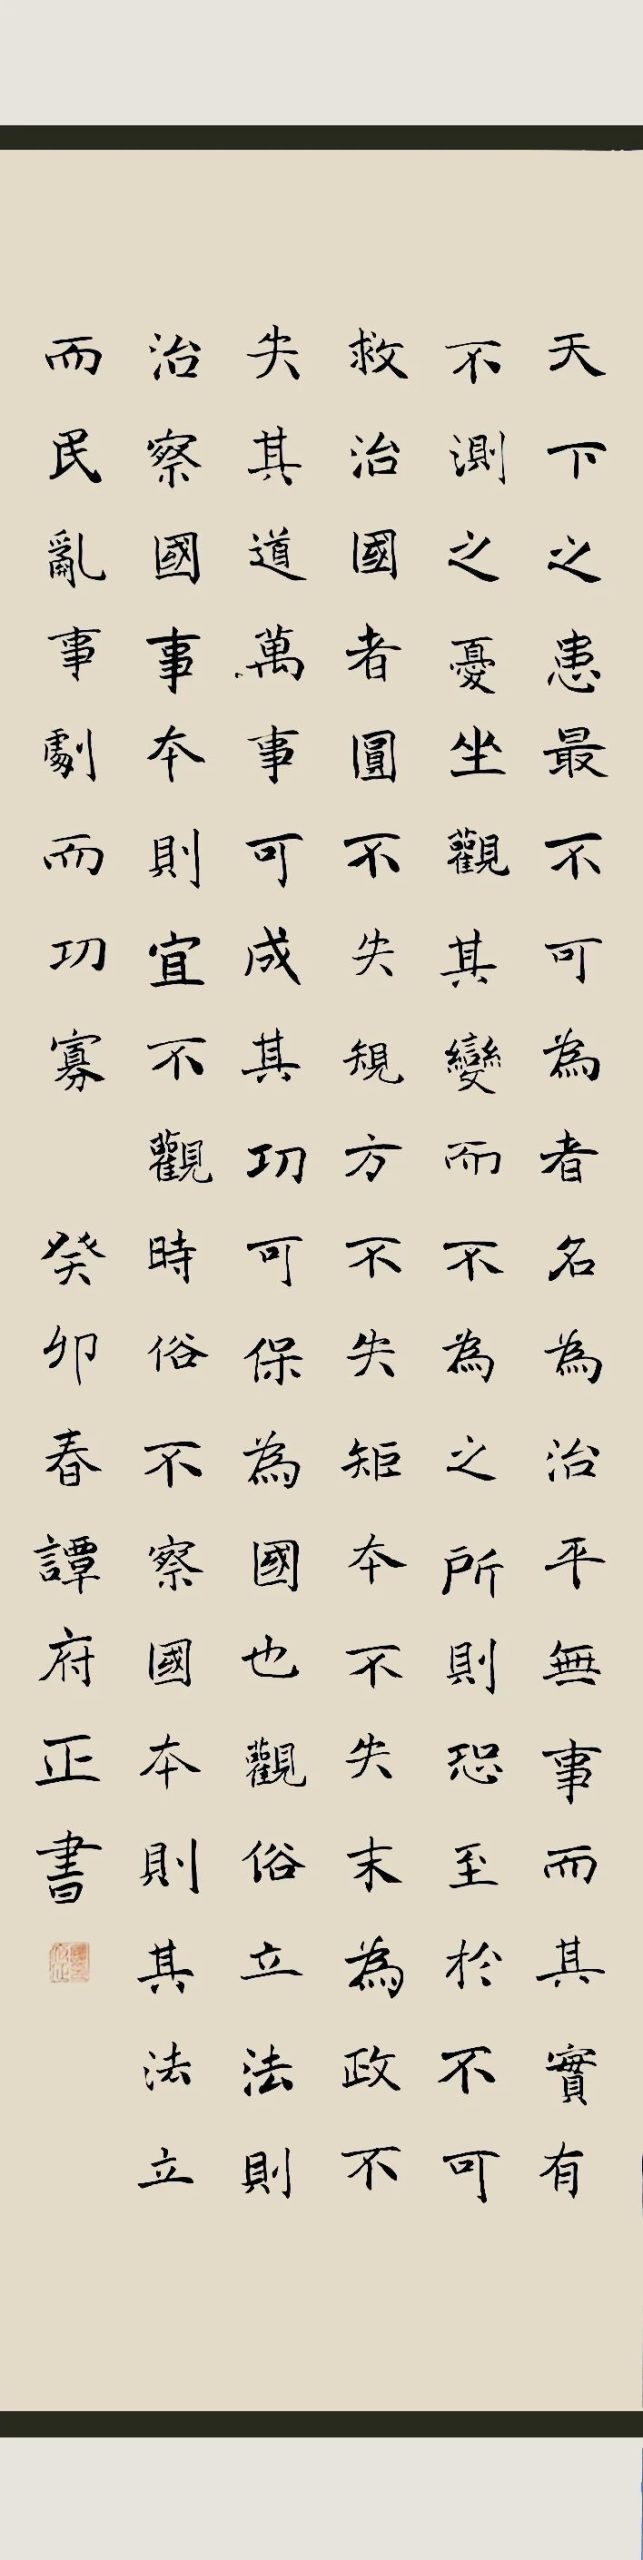 天下之患最不可為者名為治平無事而其實有
不測之憂坐觀其變而不為之所則恐至於不可
救治國者圓不失規方不失矩本不失末為政不
失其道萬事可成其功可保為國也觀俗立法則
治察國事本則宜不觀時俗不察國本則其法立
而民亂事劇而功寡 癸卯春譚府正書